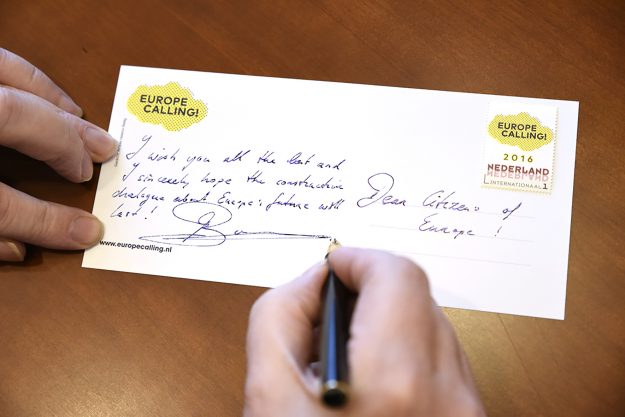 EUROPE
CALLING!
I wish you all the best and
I sincerely hope the constructive
dialogue about Europe's future with
last!
www.europecalling.nl
EUROPE
CALLING!
2016
NEDERLAND
NEDERLAND
INTERNATIONAAL 1
Dear Citizens of
Europe!